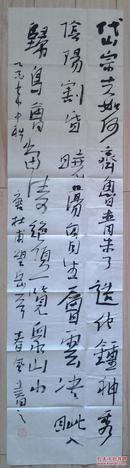 岱宗夫如何齊魯青未了造化鍾神秀
陰陽割昏曉盪胸生層雲决眦入
歸鳥會當凌絕頂一覽眾山小
中秋 唐杜甫望岳詩 春